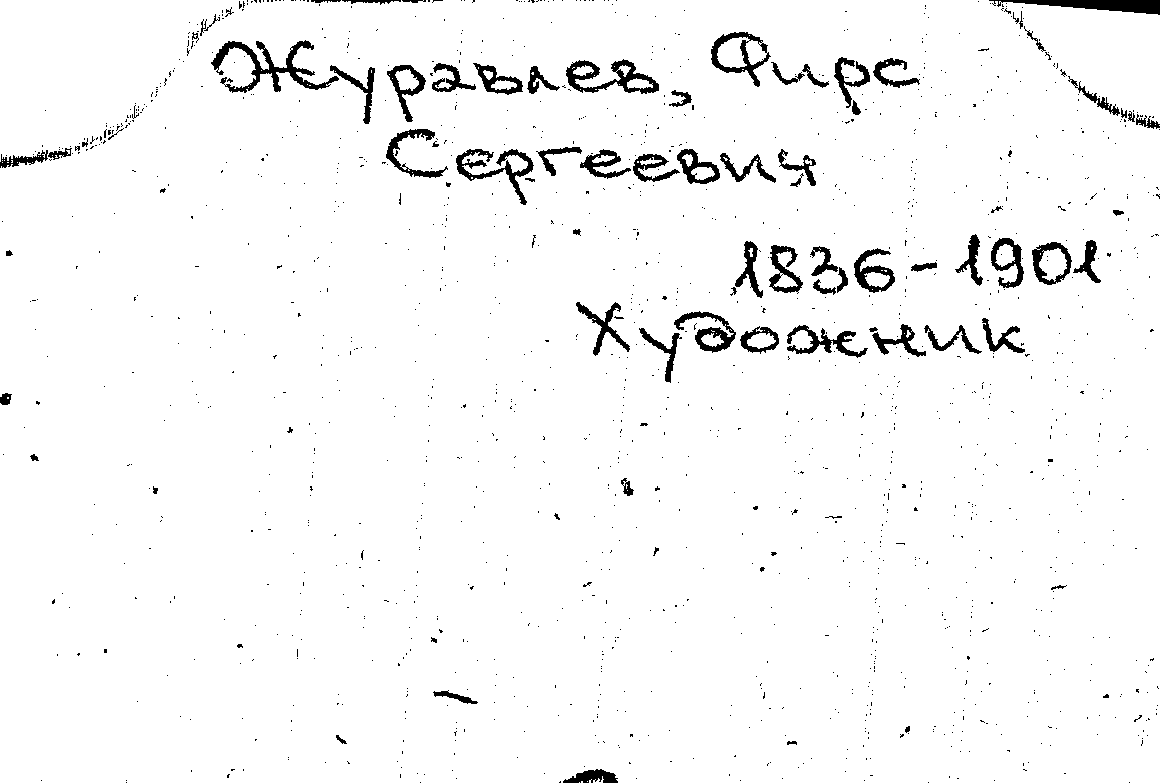 Журавлев, Фирс
Сергеевич
1836-1901
Художник